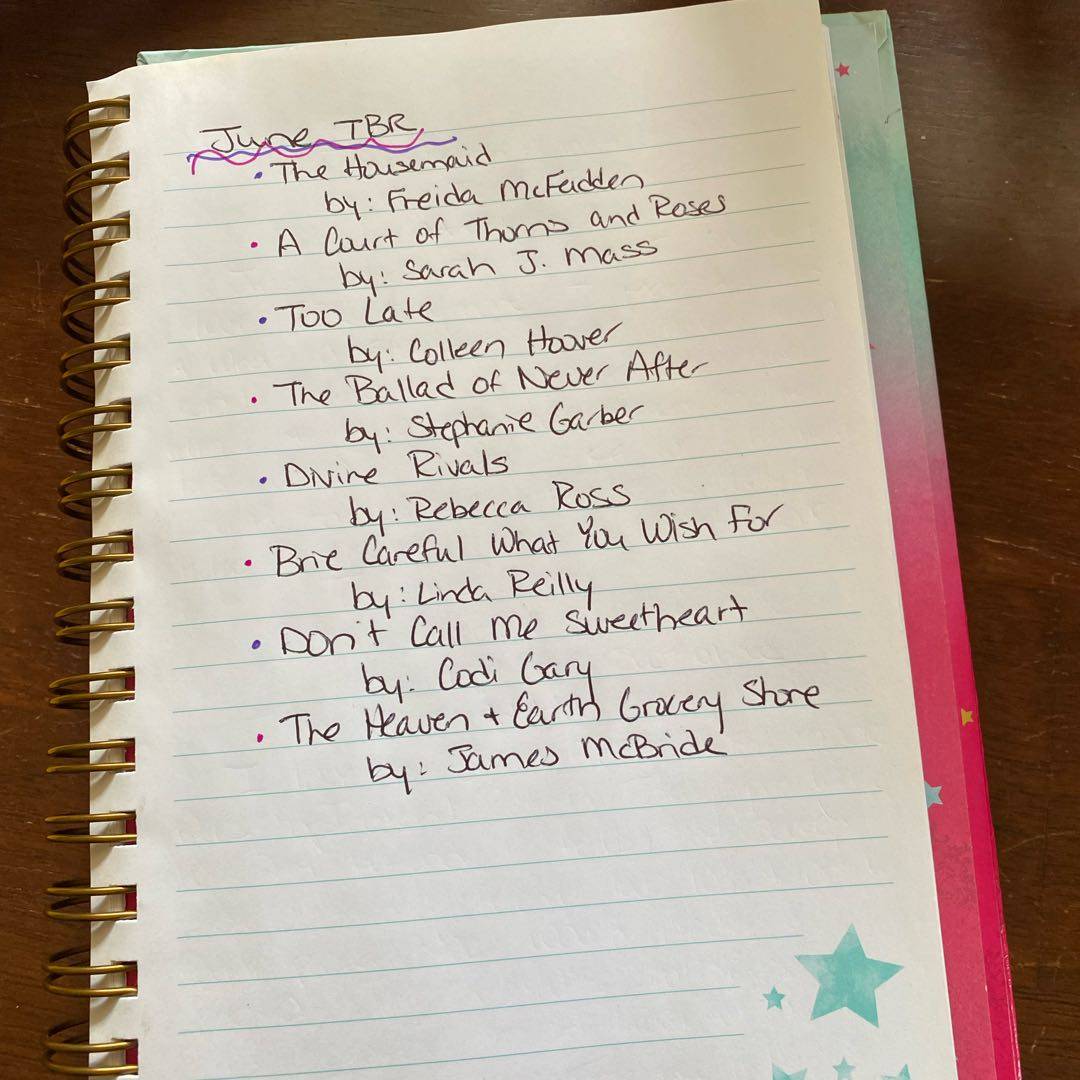 June TBR
• The Housemaid
by: Freida McFadden
• A Court of Thorns and Roses
by: Sarah J. Mass
• Too Late
by: Colleen Hoover
• The Ballad of Never After
by: Stephanie Garber
• Divine Rivals
by: Rebecca Ross
• Brie Careful What You Wish For
by: Linda Reilly
• Don't Call Me Sweetheart
by: Codi Gary
• The Heaven + Earth Grocery Store
by: James McBride